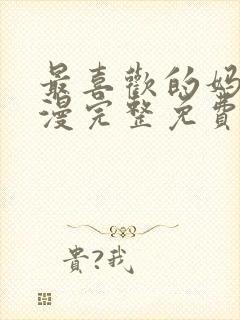 最喜歡的媽
漫完整免費
貴?我